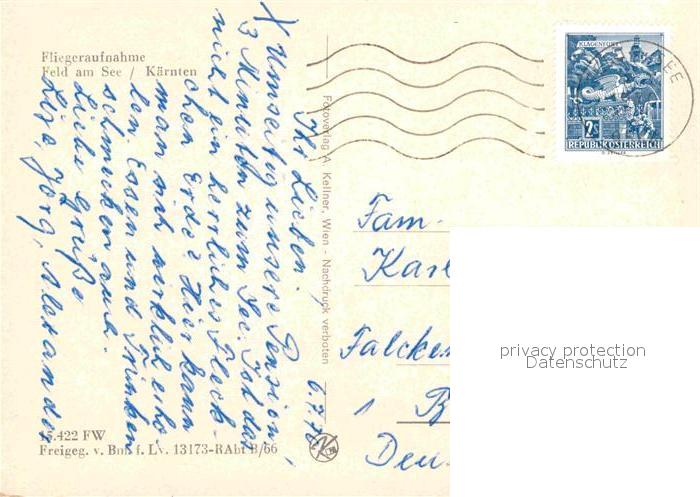 Fliegeraufnahme
Feld am See / Kärnten
Ihr Lieben.
X Umseitig unsere Pension,
3 Minuten zum See. Ist das
nicht ein herrliches Fleck-
chen Erde? Hier kann
man sich wirklich erho-
len. Essen und Trinken
schmecken auch.
Liebe Grüße
Lise, Jörg, Alexander
6.7.78
15.422 FW
Freigeg. v. Bm. f. Lv. 13173-RAbt B/66
Fotoverlag A. Kellner, Wien - Nachdruck verboten
KLAGENFURT
2S
REPUBLIK ÖSTERREICH
Fam.
Karl
Falcken
1 B
Deu
privacy protection
Datenschutz